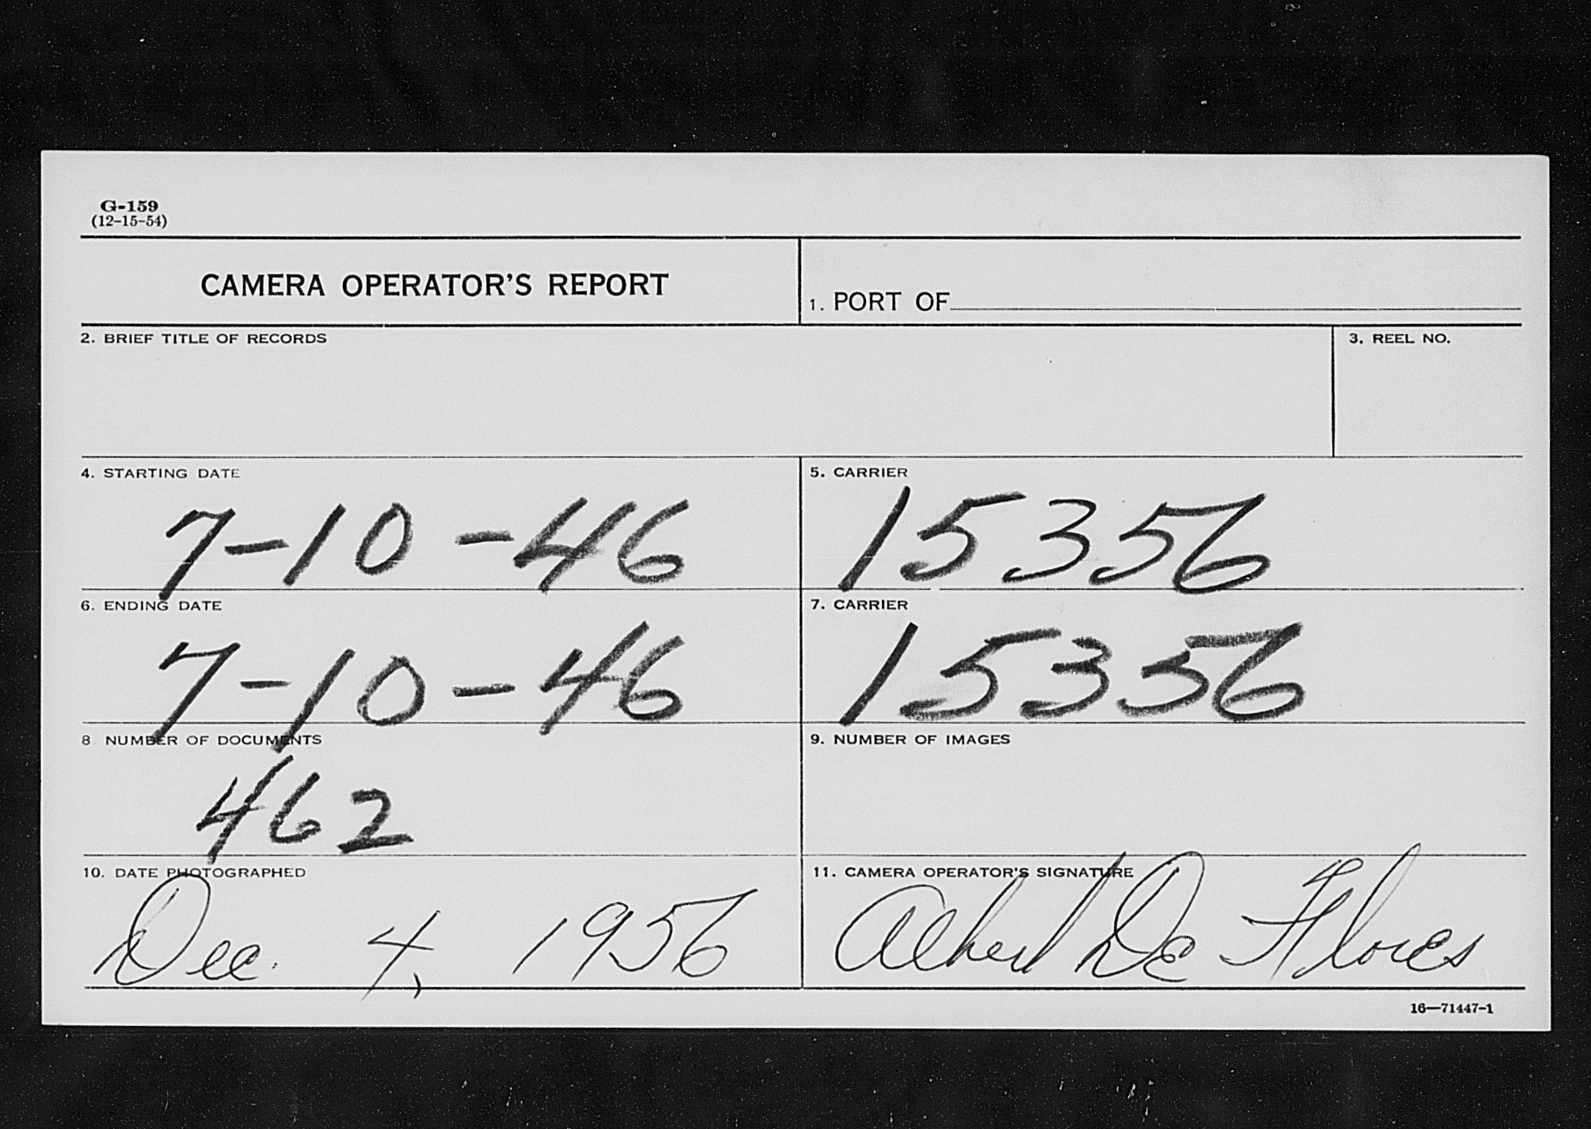 G-159
(12-15-54)
CAMERA OPERATOR'S REPORT
1. PORT OF
2. BRIEF TITLE OF RECORDS
3. REEL NO.
4. STARTING DATE
7-10-46
5. CARRIER
15356
6. ENDING DATE
7-10-46
7. CARRIER
15356
8 NUMBER OF DOCUMENTS
462
9. NUMBER OF IMAGES
10. DATE PHOTOGRAPHED
Dec. 4, 1956
11. CAMERA OPERATOR'S SIGNATURE
Albert De Flores
16—71447-1